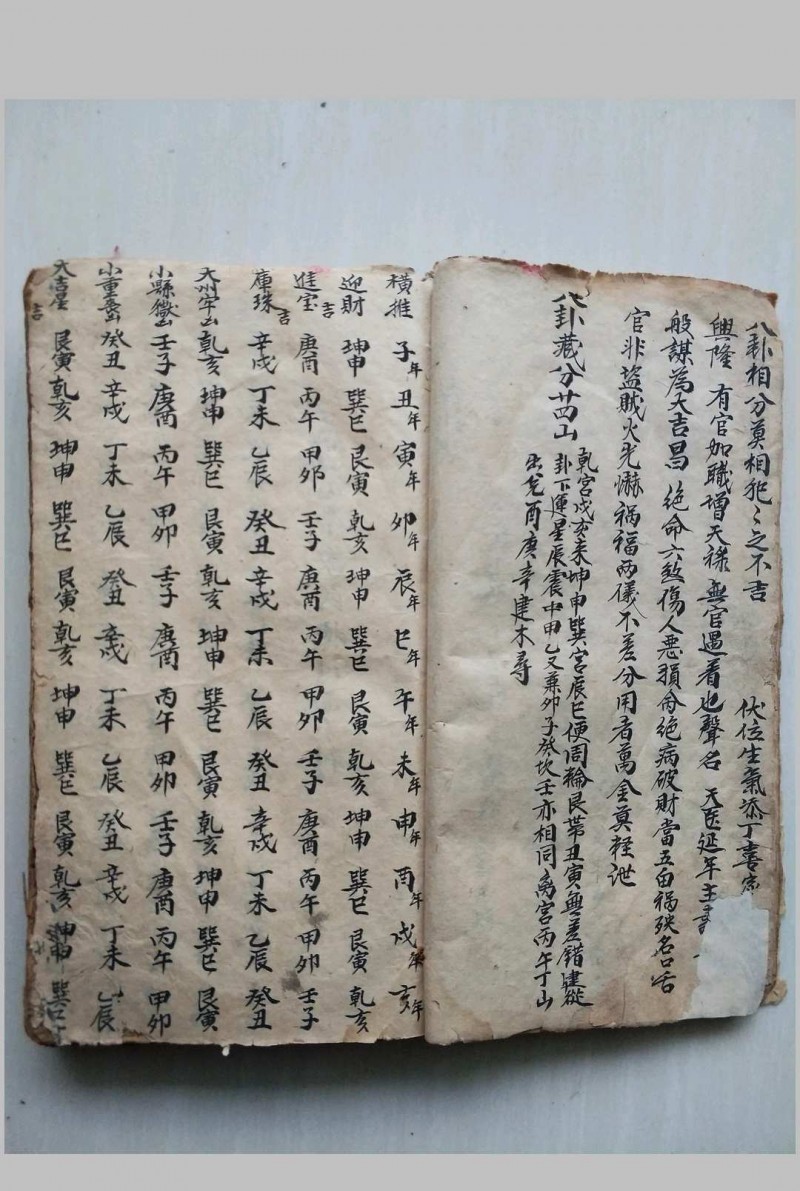 八卦相分莫相犯〻之不吉 伏位生氣添丁喜
興隆 有官加職增天祿 無官遇着也聲名 天医延年主
般謀為大吉昌 絶命六煞傷人悪 損丁絶病破財當 五白禍殃名口舌
官非盜賊火光嚇 禍福兩儀不差分 用者萬金莫輕泄
八卦藏分廿四山
乾宮戌亥来坤申 巽宮辰巳便同輪 艮帶丑寅無差錯 建從
卦下運星辰 震中甲乙又兼卯 子癸坎壬亦相同 离宮丙午丁山
出 兌酉庚辛建木尋
橫推 子年 丑年 寅年 卯年 辰年 巳年 午年 未年 申年 酉年 戌年 亥年
迎財 坤申 巽巳 艮寅 乾亥 坤申 巽巳 艮寅 乾亥 坤申 巽巳 艮寅 乾亥
進宝 吉 庚酉 丙午 甲卯 壬子 庚酉 丙午 甲卯 壬子 庚酉 丙午 甲卯 壬子
庫珠 吉 辛戌 丁未 乙辰 癸丑 辛戌 丁未 乙辰 癸丑 辛戌 丁未 乙辰 癸丑
大州牢 乾亥 坤申 巽巳 艮寅 乾亥 坤申 巽巳 艮寅 乾亥 坤申 巽巳 艮寅
小縣獄 壬子 庚酉 丙午 甲卯 壬子 庚酉 丙午 甲卯 壬子 庚酉 丙午 甲卯
小重 癸丑 辛戌 丁未 乙辰 癸丑 辛戌 丁未 乙辰 癸丑 辛戌 丁未 乙辰
大吉星 吉 艮寅 乾亥 坤申 巽巳 艮寅 乾亥 坤申 巽巳 艮寅 乾亥 坤申 巽巳